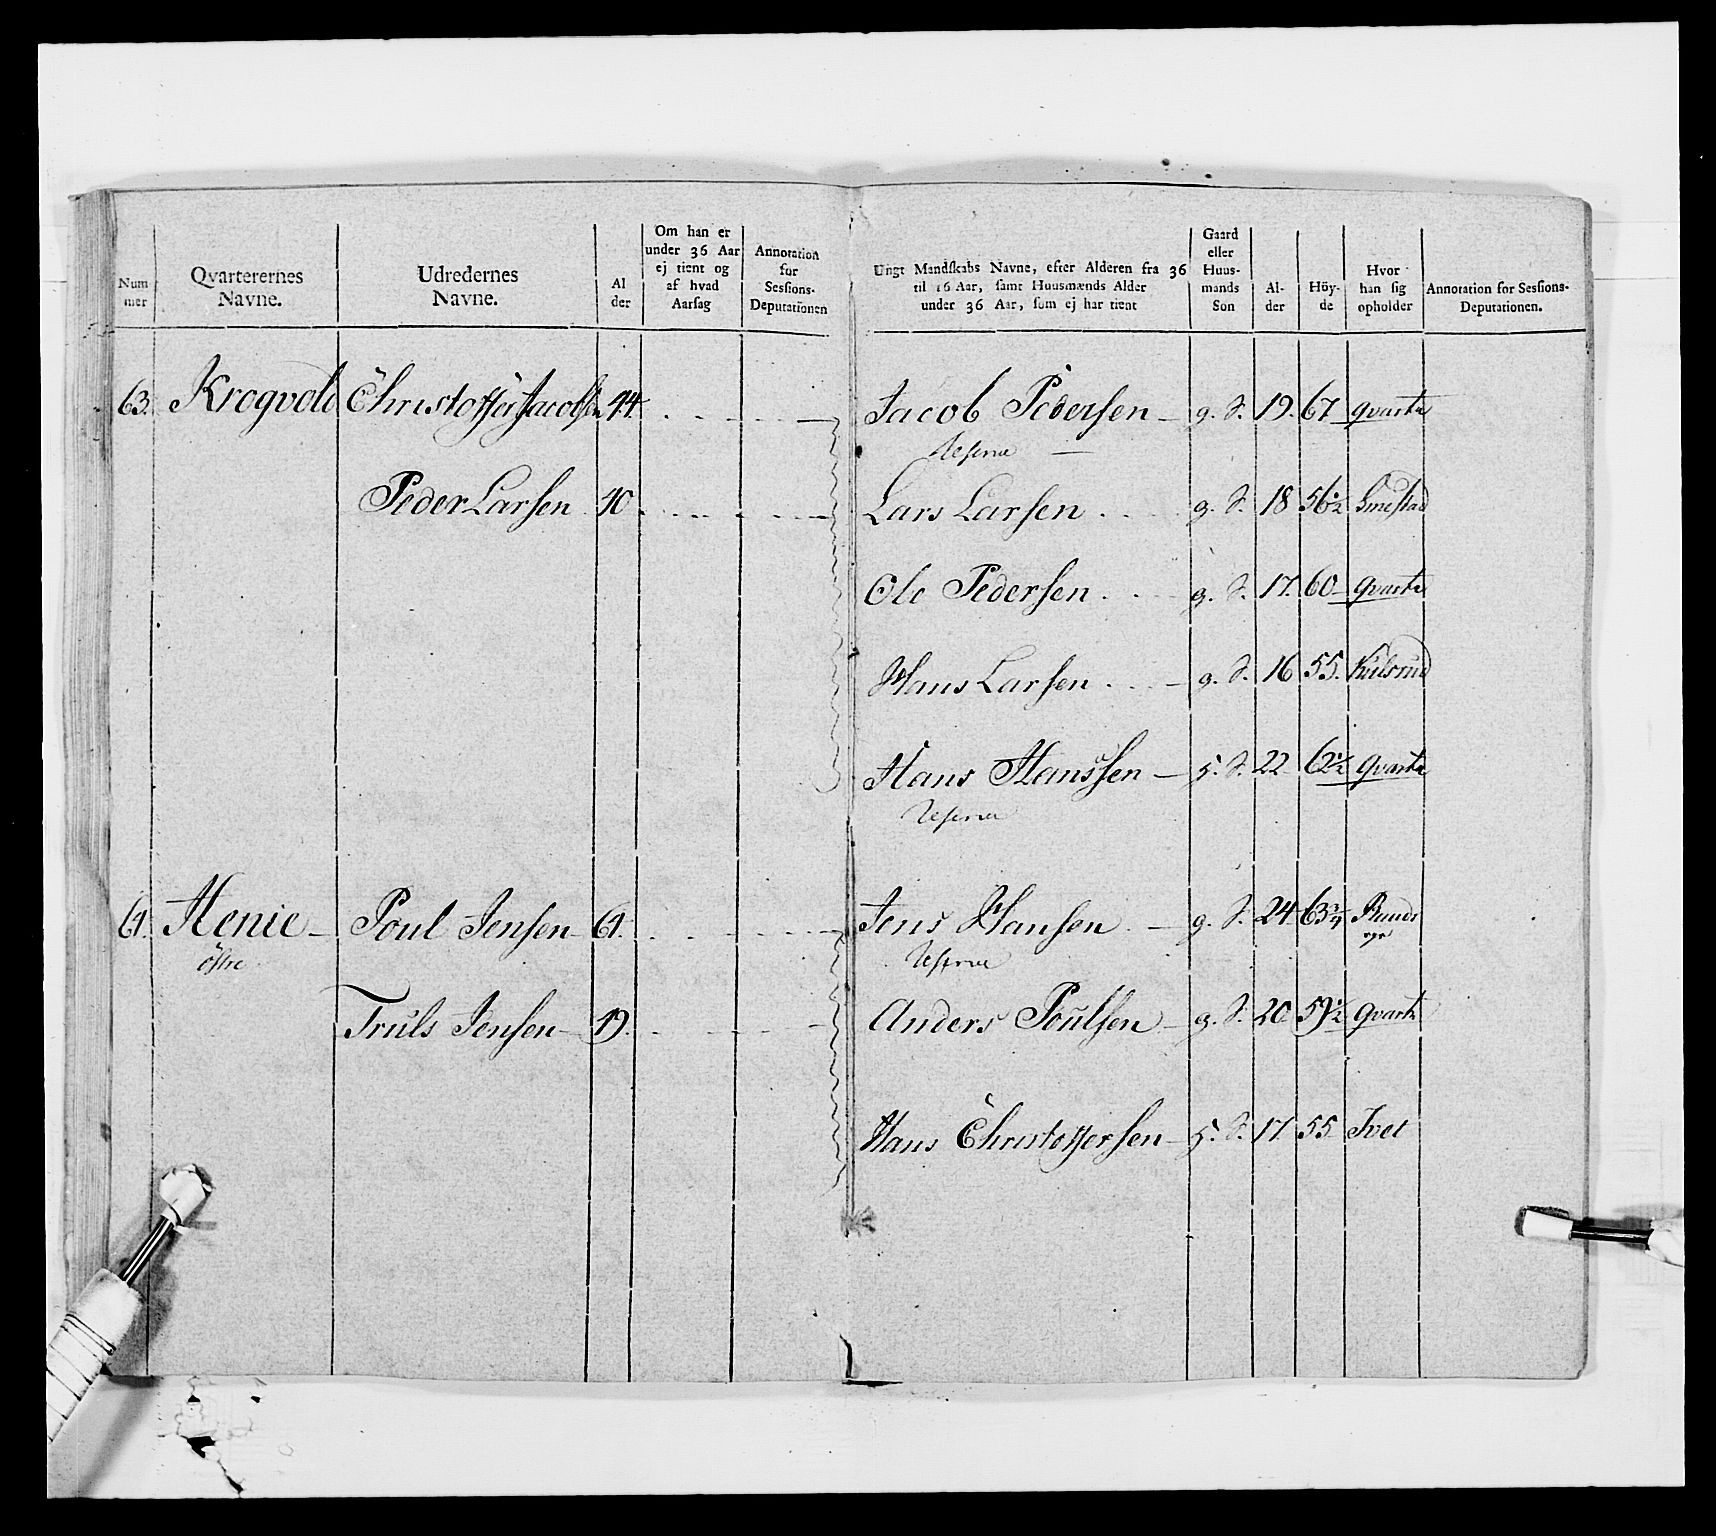 Num
mer
Qvarterernes
Navne.
Udredernes
Navne.
Al
der
Om han er
under 36 Aar
ej tient og
af hvad
Aarsag
Annotation
for
Sessions-
Deputationen
Ungt Mandskabs Navne, efter Alderen fra 36
til 16 Aar, samt Huusmænds Alder
under 36 Aar, som ej har tient
Gaard
eller
Huus-
mands
Son
Al-
der
Höy-
de
Hvor
han sig
opholder
Annotation for Sessions-
Deputationen.
63. Krogvold Christoffer Jacobsen 44 Jacob Pedersen g. S. 19. 67 qvarte
Reserve
Peder Larsen 40 Lars Larsen g. S. 18 56½ Smestad
Ole Pedersen g. S. 17. 60 qvarte
Hans Larsen g. S. 16 55.
Hans Hanssen h. S. 22 62½ qvarte
Reserve
64. Henie Poul Jensen 64. Jens Hansen g. S. 24 63¾
östre Reserve
Truls Jensen 49. Anders Poulsen g. S. 20 59½ qvarte
Hans Christoffersen h. S. 17 55 Tvet